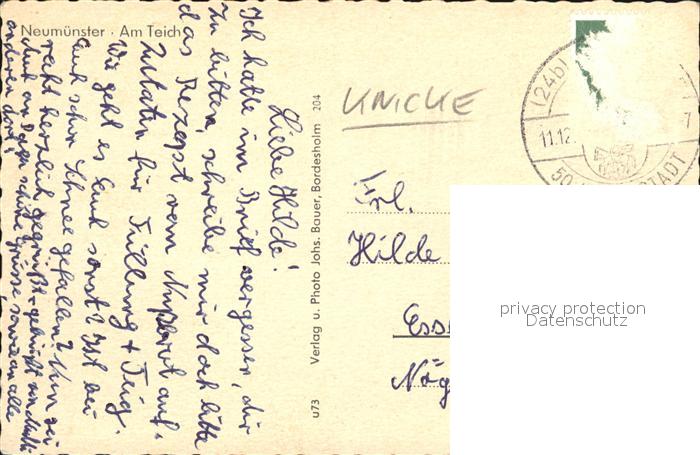 Neumünster · Am Teich
Liebe Hilde!
Ich hatte im Brief vergessen, dir
zu bitten, schreibe mir doch bitte
das Rezept vom Nußbrot auf.
Zutaten für Füllung + Teig.
Wie geht es Euch sonst? Ist bei
Euch schon Schnee gefallen? Nun sei
recht herzlich gegrüßt + geküßt von
schöne Grüße an alle
anderen dort!
Verlag u. Photo Johs. Bauer, Bordesholm 204
u73
KNICKE
(24b)
11.12.
50
STADT
Frl.
Hilde
Ess
Nög
privacy protection
Datenschutz